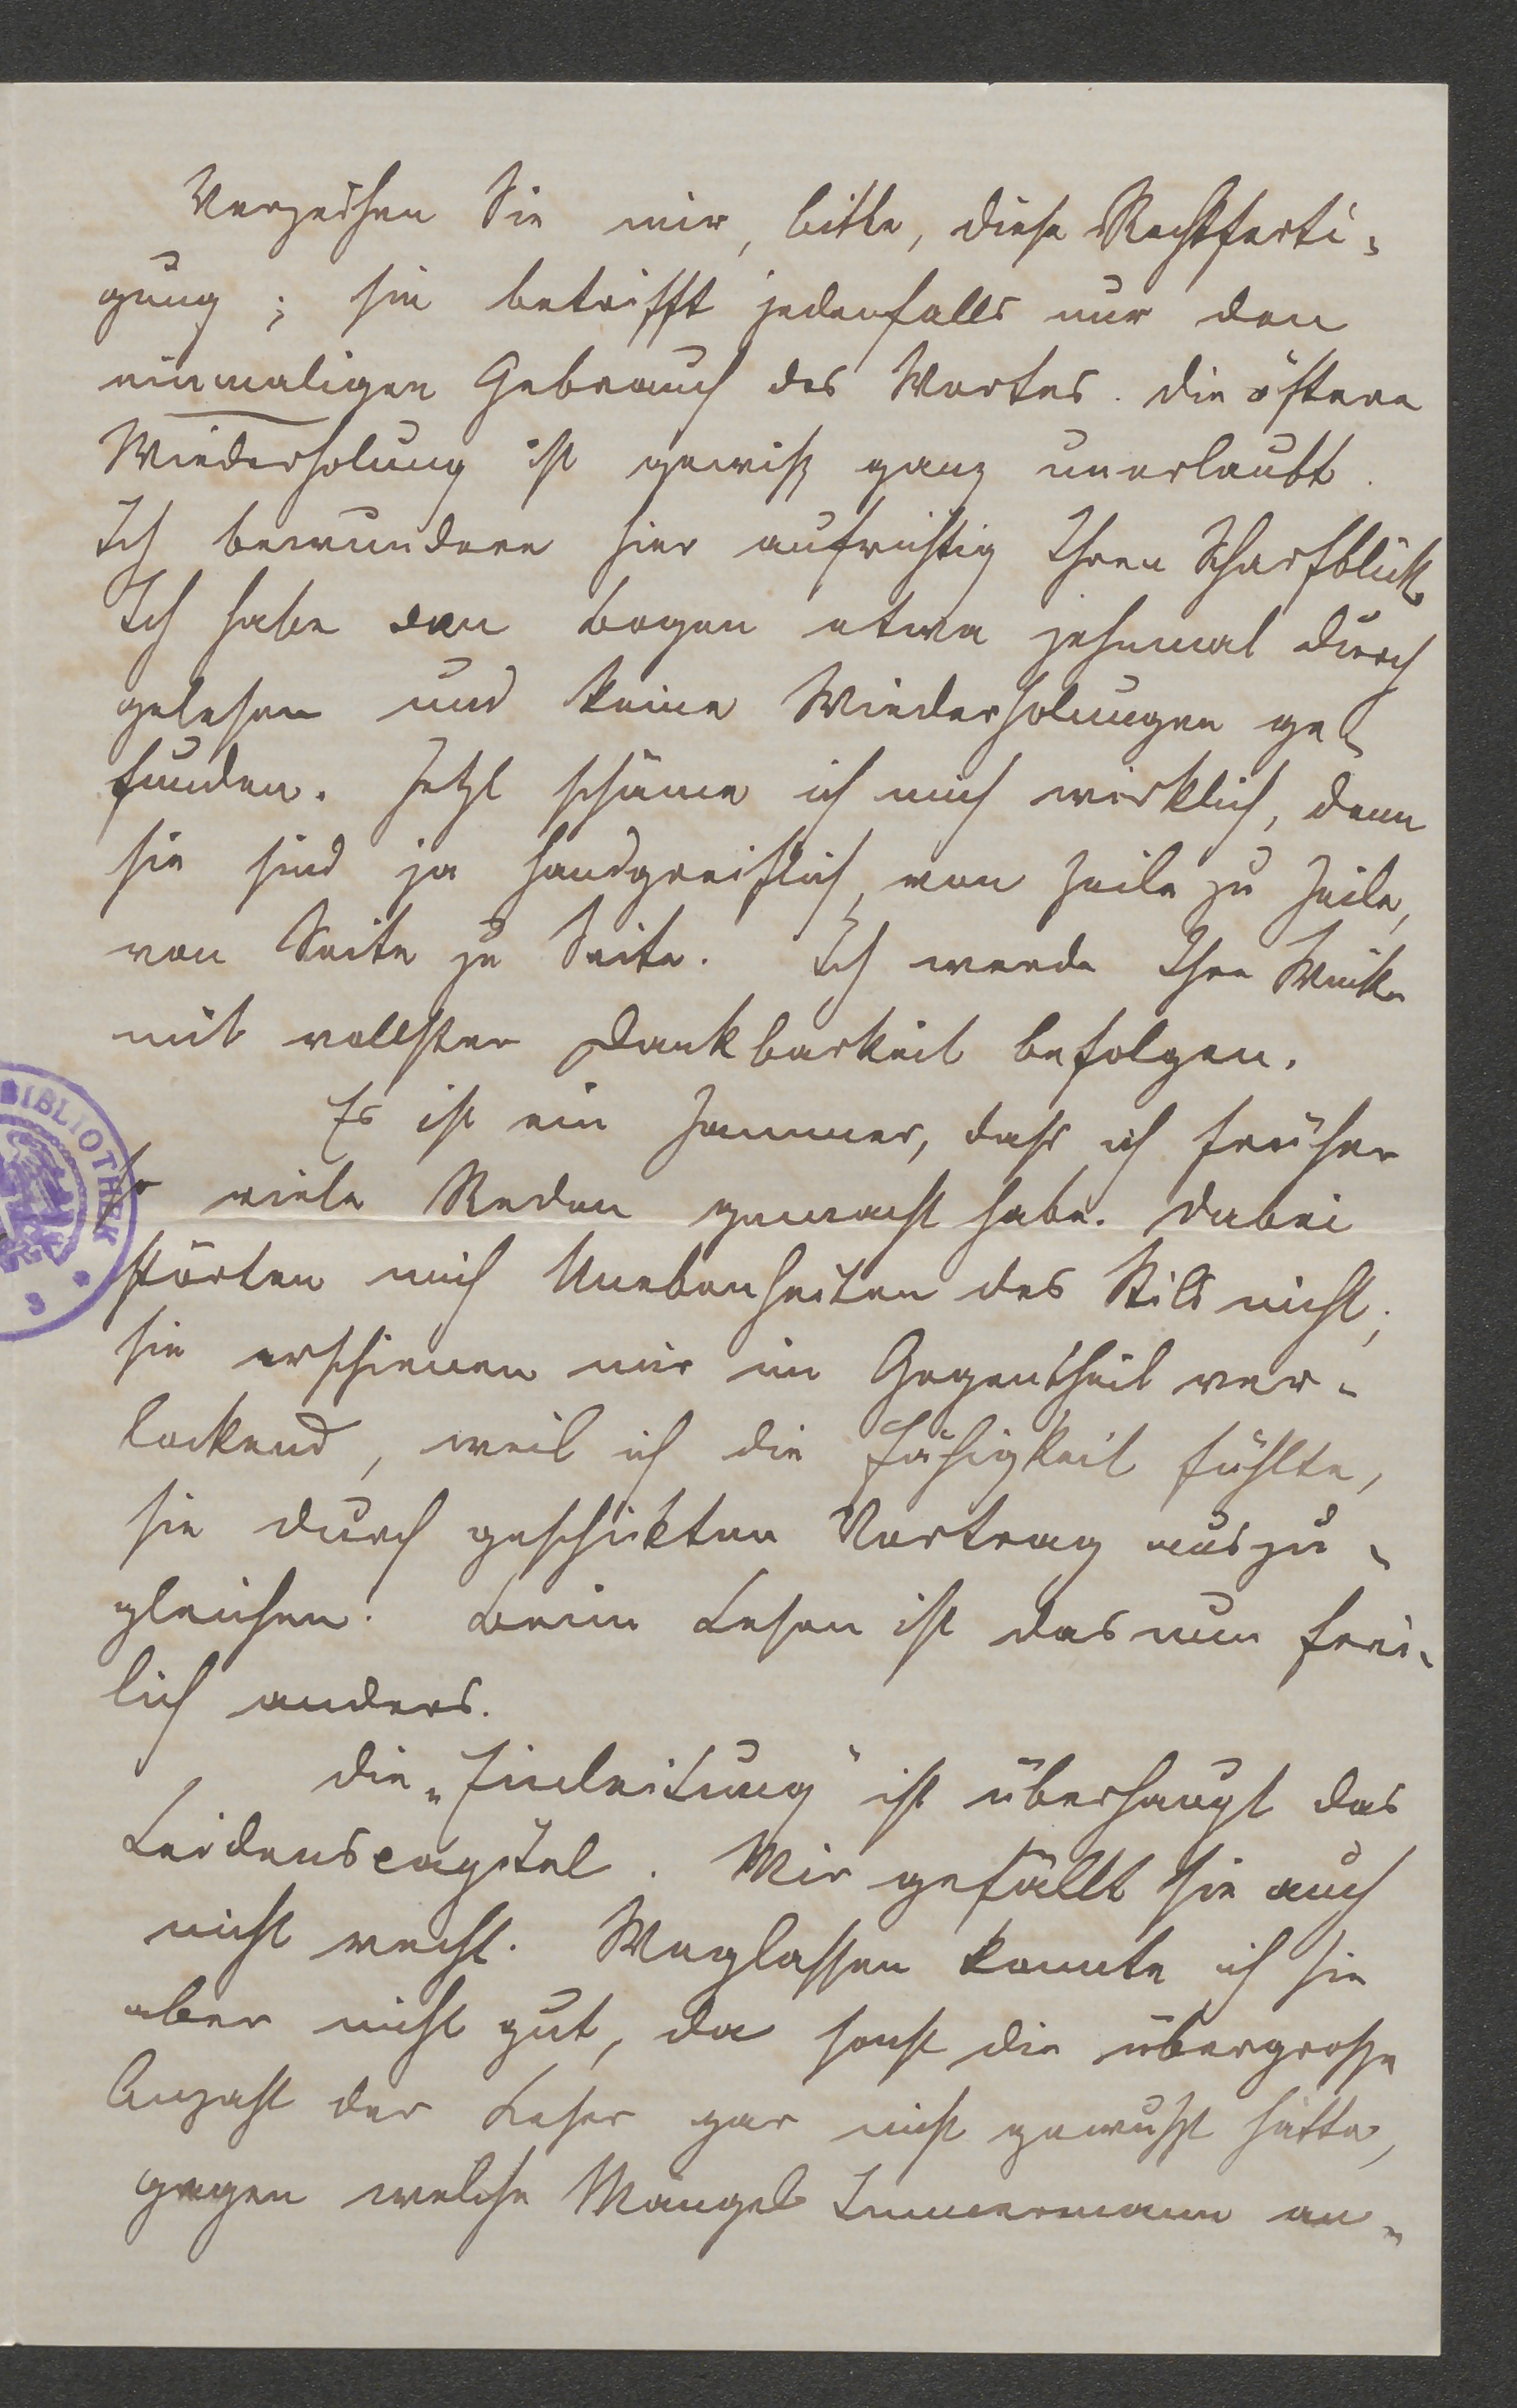 Verzeihen Sie mir, bitte, diese Rechtferti-
gung; sie betrifft jedenfalls nur den
einmaligen Gebrauch des Wortes. Die öftere
Wiederholung ist gewiß ganz unerlaubt.
Ich bewundere hier aufrichtig Ihren Scharfblick.
Ich habe den Bogen etwa zehnmal durch
gelesen und keine Wiederholungen ge-
funden. Jetzt schäme ich mich wirklich, denn
sie sind ja handgreiflich, von Zeile zu Zeile,
von Seite zu Seite. Ich werde Ihre Winke
mit vollster Dankbarkeit befolgen.
Es ist ein Jammer, dass ich früher
so viele Reden gemacht habe. Dabei
störten mich Unebenheiten des Stils nicht;
sie erschienen mir im Gegentheil ver-
lockend, weil ich die Fähigkeit fühlte,
sie durch geschickten Vortrag auszu-
gleichen. Beim Lesen ist das nun frei-
lich anders.
Die „Einleitung“ ist überhaupt das
Leidenscapitel. Mir gefällt sie auch
nicht recht. Weglassen konnte ich sie
aber nicht gut, da sonst die übergroße
Anzahl der Leser gar nicht gewußt hätte,
gegen welche Mängel Immermann an-
BIBLIOTHEK